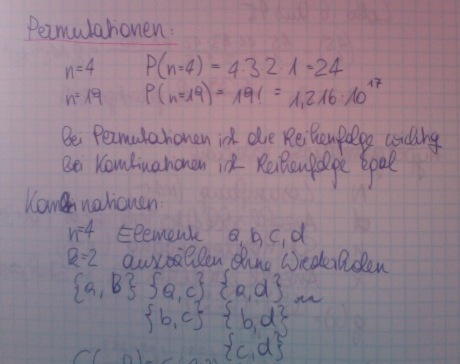 Permutationen:
n=4 P(n=4) = 4·3·2·1 = 24
n=19 P(n=19) = 19! = 1,216·10^17
Bei Permutationen ist die Reihenfolge wichtig
Bei Kombinationen ist Reihenfolge egal
Kombinationen:
n=4 Elemente a, b, c, d
k=2 auswählen ohne Wiederholen
{a, B} {a, c} {a, d}
{b, c} {b, d}
{c, d}